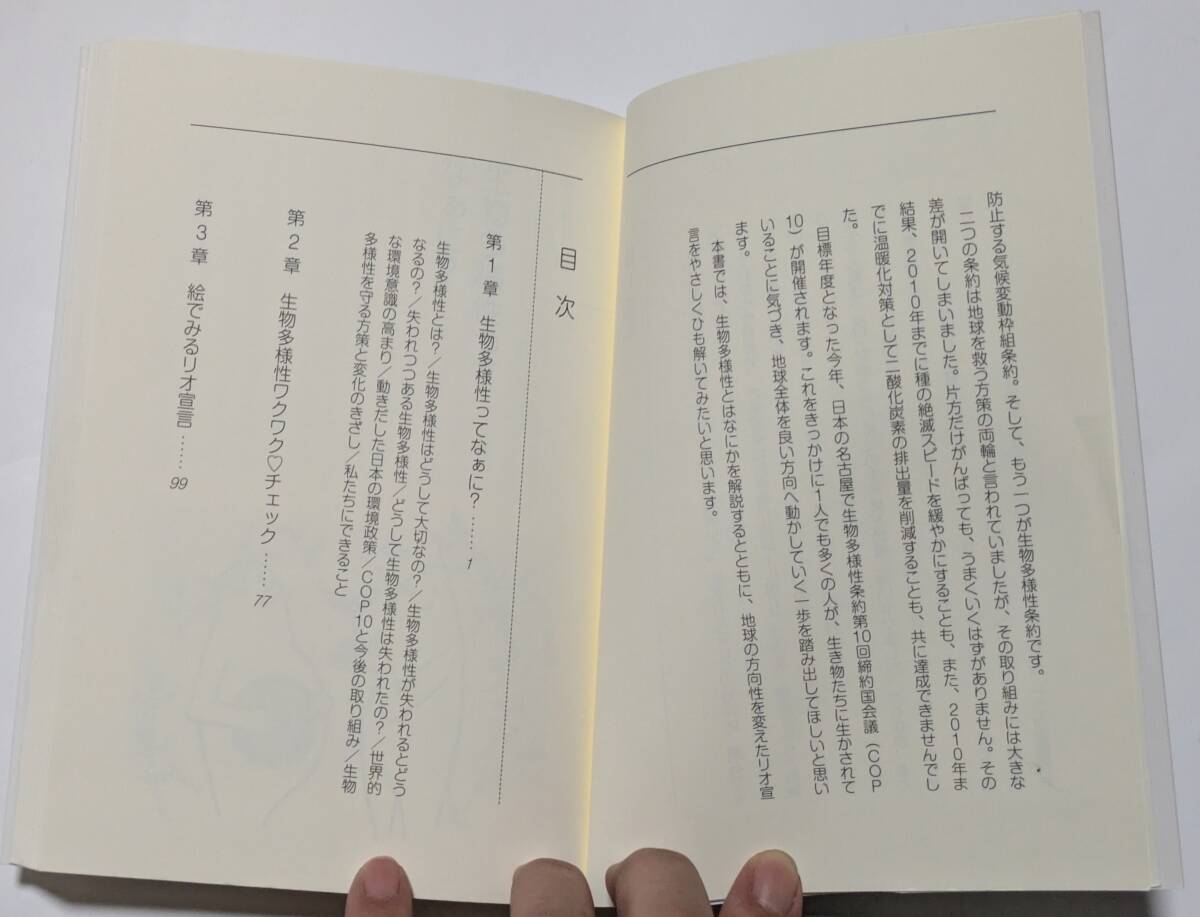 防止する気候変動枠組条約。そして、もう一つが生物多様性条約です。
二つの条約は地球を救う方策の両輪と言われていましたが、その取り組みには大きな
差が開いてしまいました。片方だけがんばっても、うまくいくはずがありません。その
結果、2010年までに種の絶滅スピードを緩やかにすることも、また、2010年ま
でに温暖化対策として二酸化炭素の排出量を削減することも、共に達成できませんでし
た。
目標年度となった今年、日本の名古屋で生物多様性条約第10回締約国会議（COP
10）が開催されます。これをきっかけに1人でも多くの人が、生き物たちに生かされて
いることに気づき、地球全体を良い方向へ動かしていく一歩を踏み出してほしいと思い
ます。
本書では、生物多様性とはなにかを解説するとともに、地球の方向性を変えたリオ宣
言をやさしくひも解いてみたいと思います。
目次
第1章 生物多様性ってなぁに？……1
生物多様性とは？／生物多様性はどうして大切なの？／生物多様性が失われるとどう
なるの？／失われつつある生物多様性／どうして生物多様性は失われたの？／世界的
な環境意識の高まり／動きだした日本の環境政策／COP10と今後の取り組み／生物
多様性を守る方策と変化のきざし／私たちにできること
第2章 生物多様性ワクワク♡チェック……77
第3章 絵でみるリオ宣言……99